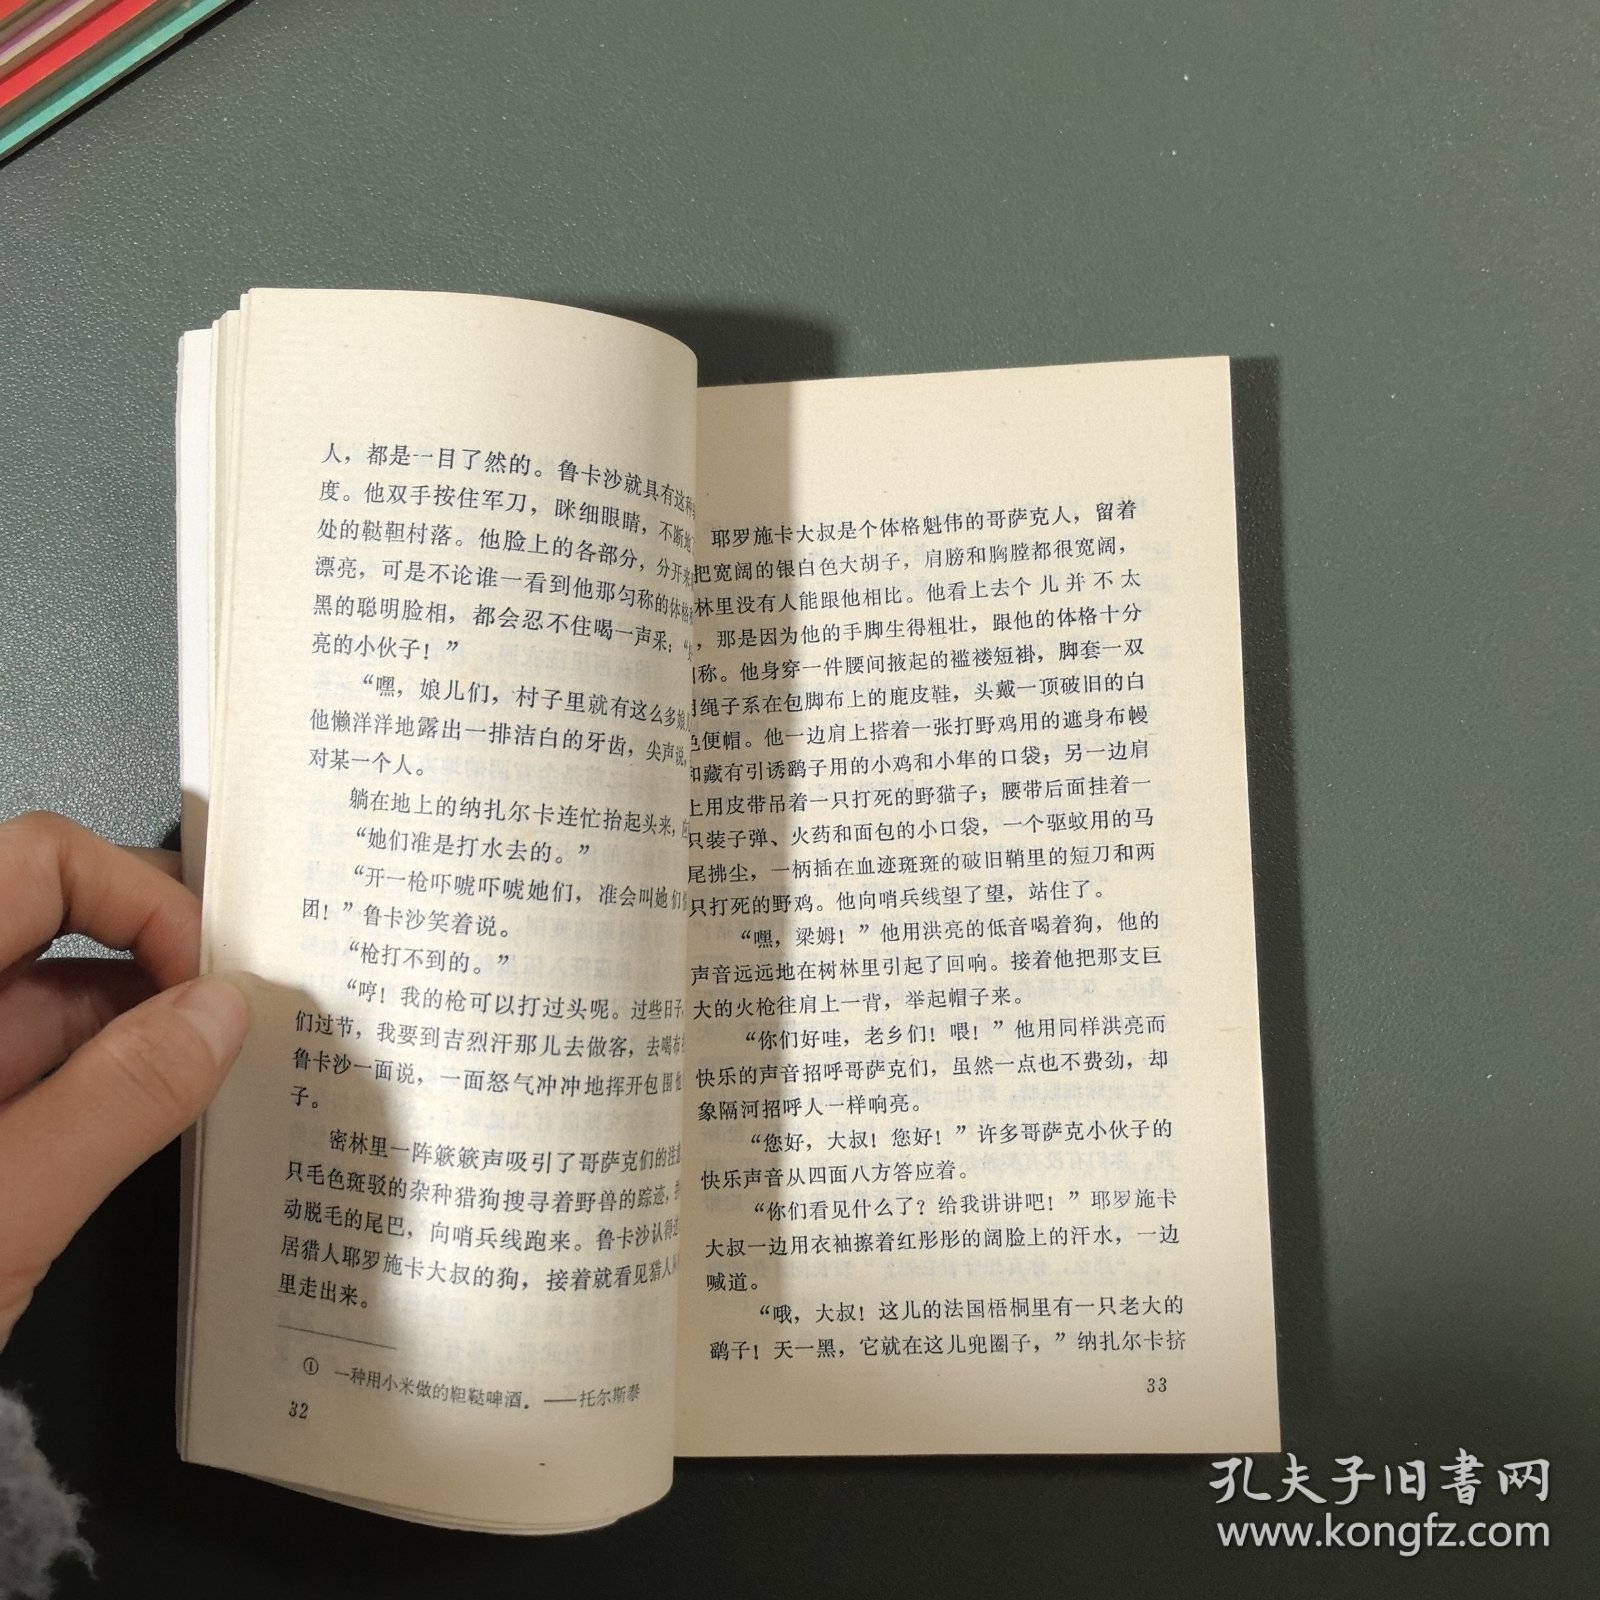 人，都是一目了然的。鲁卡沙就具有这种
度。他双手按住军刀，眯细眼睛，不断地
处的鞑靼村落。他脸上的各部分，分开来
漂亮，可是不论谁一看到他那匀称的体格
黑的聪明脸相，都会忍不住喝一声采：“
亮的小伙子！”
“嘿，娘儿们，村子里就有这么多娘
他懒洋洋地露出一排洁白的牙齿，尖声说，
对某一个人。
躺在地上的纳扎尔卡连忙抬起头来，
“她们准是打水去的。”
“开一枪吓唬吓唬她们，准会叫她们
团！”鲁卡沙笑着说。
“枪打不到的。”
“哼！我的枪可以打过头呢。过些日子，
们过节，我要到吉烈汗那儿去做客，去喝布
鲁卡沙一面说，一面怒气冲冲地挥开包围他
子。
密林里一阵簌簌声吸引了哥萨克们的注意
只毛色斑驳的杂种猎狗搜寻着野兽的踪迹，
动脱毛的尾巴，向哨兵线跑来。鲁卡沙认得
居猎人耶罗施卡大叔的狗，接着就看见猎人从
里走出来。
① 一种用小米做的靼鞑啤酒。——托尔斯泰
32
耶罗施卡大叔是个体格魁伟的哥萨克人，留着
把宽阔的银白色大胡子，肩膀和胸膛都很宽阔，
林里没有人能跟他相比。他看上去个儿并不太
，那是因为他的手脚生得粗壮，跟他的体格十分
称。他身穿一件腰间掖起的褴褛短褂，脚套一双
用绳子系在包脚布上的鹿皮鞋，头戴一顶破旧的白
色便帽。他一边肩上搭着一张打野鸡用的遮身布幔
和藏有引诱鹞子用的小鸡和小隼的口袋；另一边肩
上用皮带吊着一只打死的野猫子；腰带后面挂着一
只装子弹、火药和面包的小口袋，一个驱蚊用的马
尾拂尘，一柄插在血迹斑斑的破旧鞘里的短刀和两
只打死的野鸡。他向哨兵线望了望，站住了。
“嘿，梁姆！”他用洪亮的低音喝着狗，他的
声音远远地在树林里引起了回响。接着他把那支巨
大的火枪往肩上一背，举起帽子来。
“你们好哇，老乡们！喂！”他用同样洪亮而
快乐的声音招呼哥萨克们，虽然一点也不费劲，却
象隔河招呼人一样响亮。
“您好，大叔！您好！”许多哥萨克小伙子的
快乐声音从四面八方答应着。
“你们看见什么了？给我讲讲吧！”耶罗施卡
大叔一边用衣袖擦着红彤彤的阔脸上的汗水，一边
喊道。
“哦，大叔！这儿的法国梧桐里有一只老大的
鹞子！天一黑，它就在这儿兜圈子，”纳扎尔卡挤
33
孔夫子旧书网
www.kongfz.com